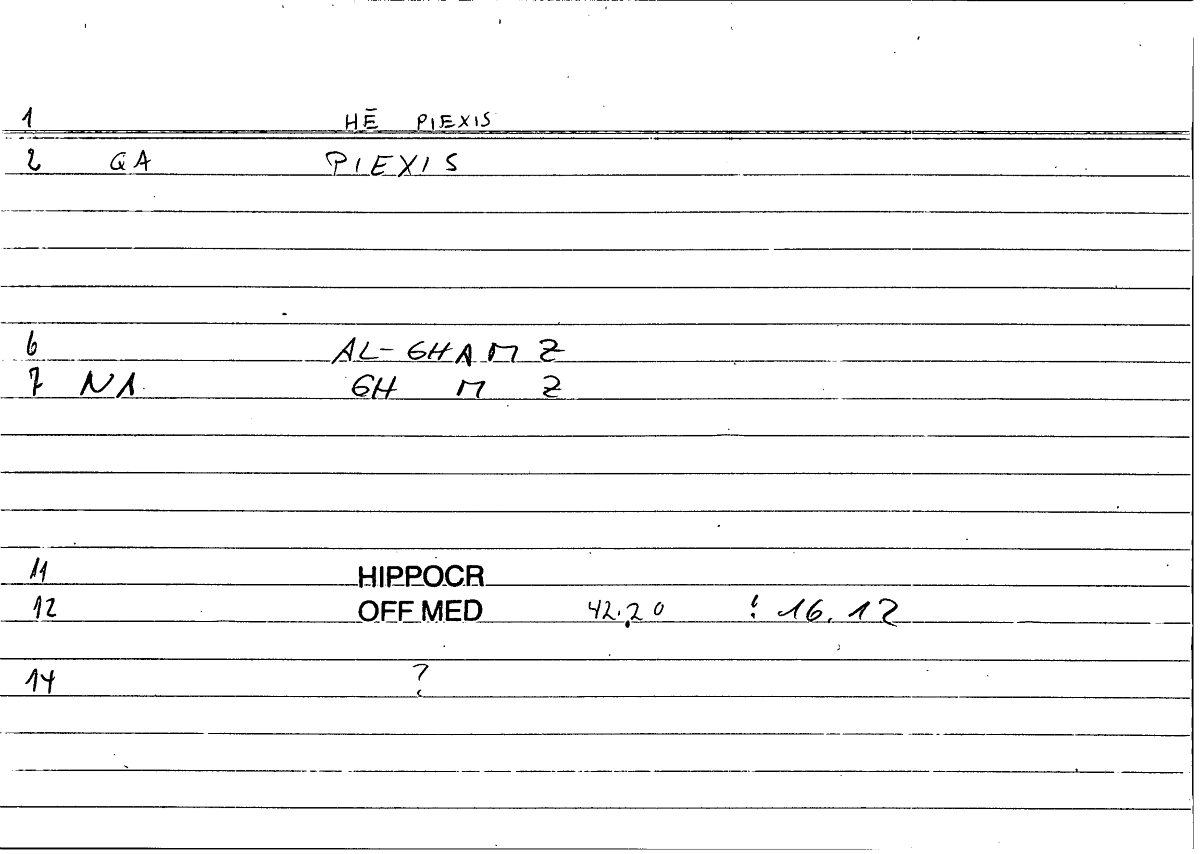 1 HĒ PIEXIS
2 QA PIEXIS
6 AL-GHAMZ
7 NA GH M Z
11 HIPPOCR
12 OFF MED 42.20 : 16.12
14 ?